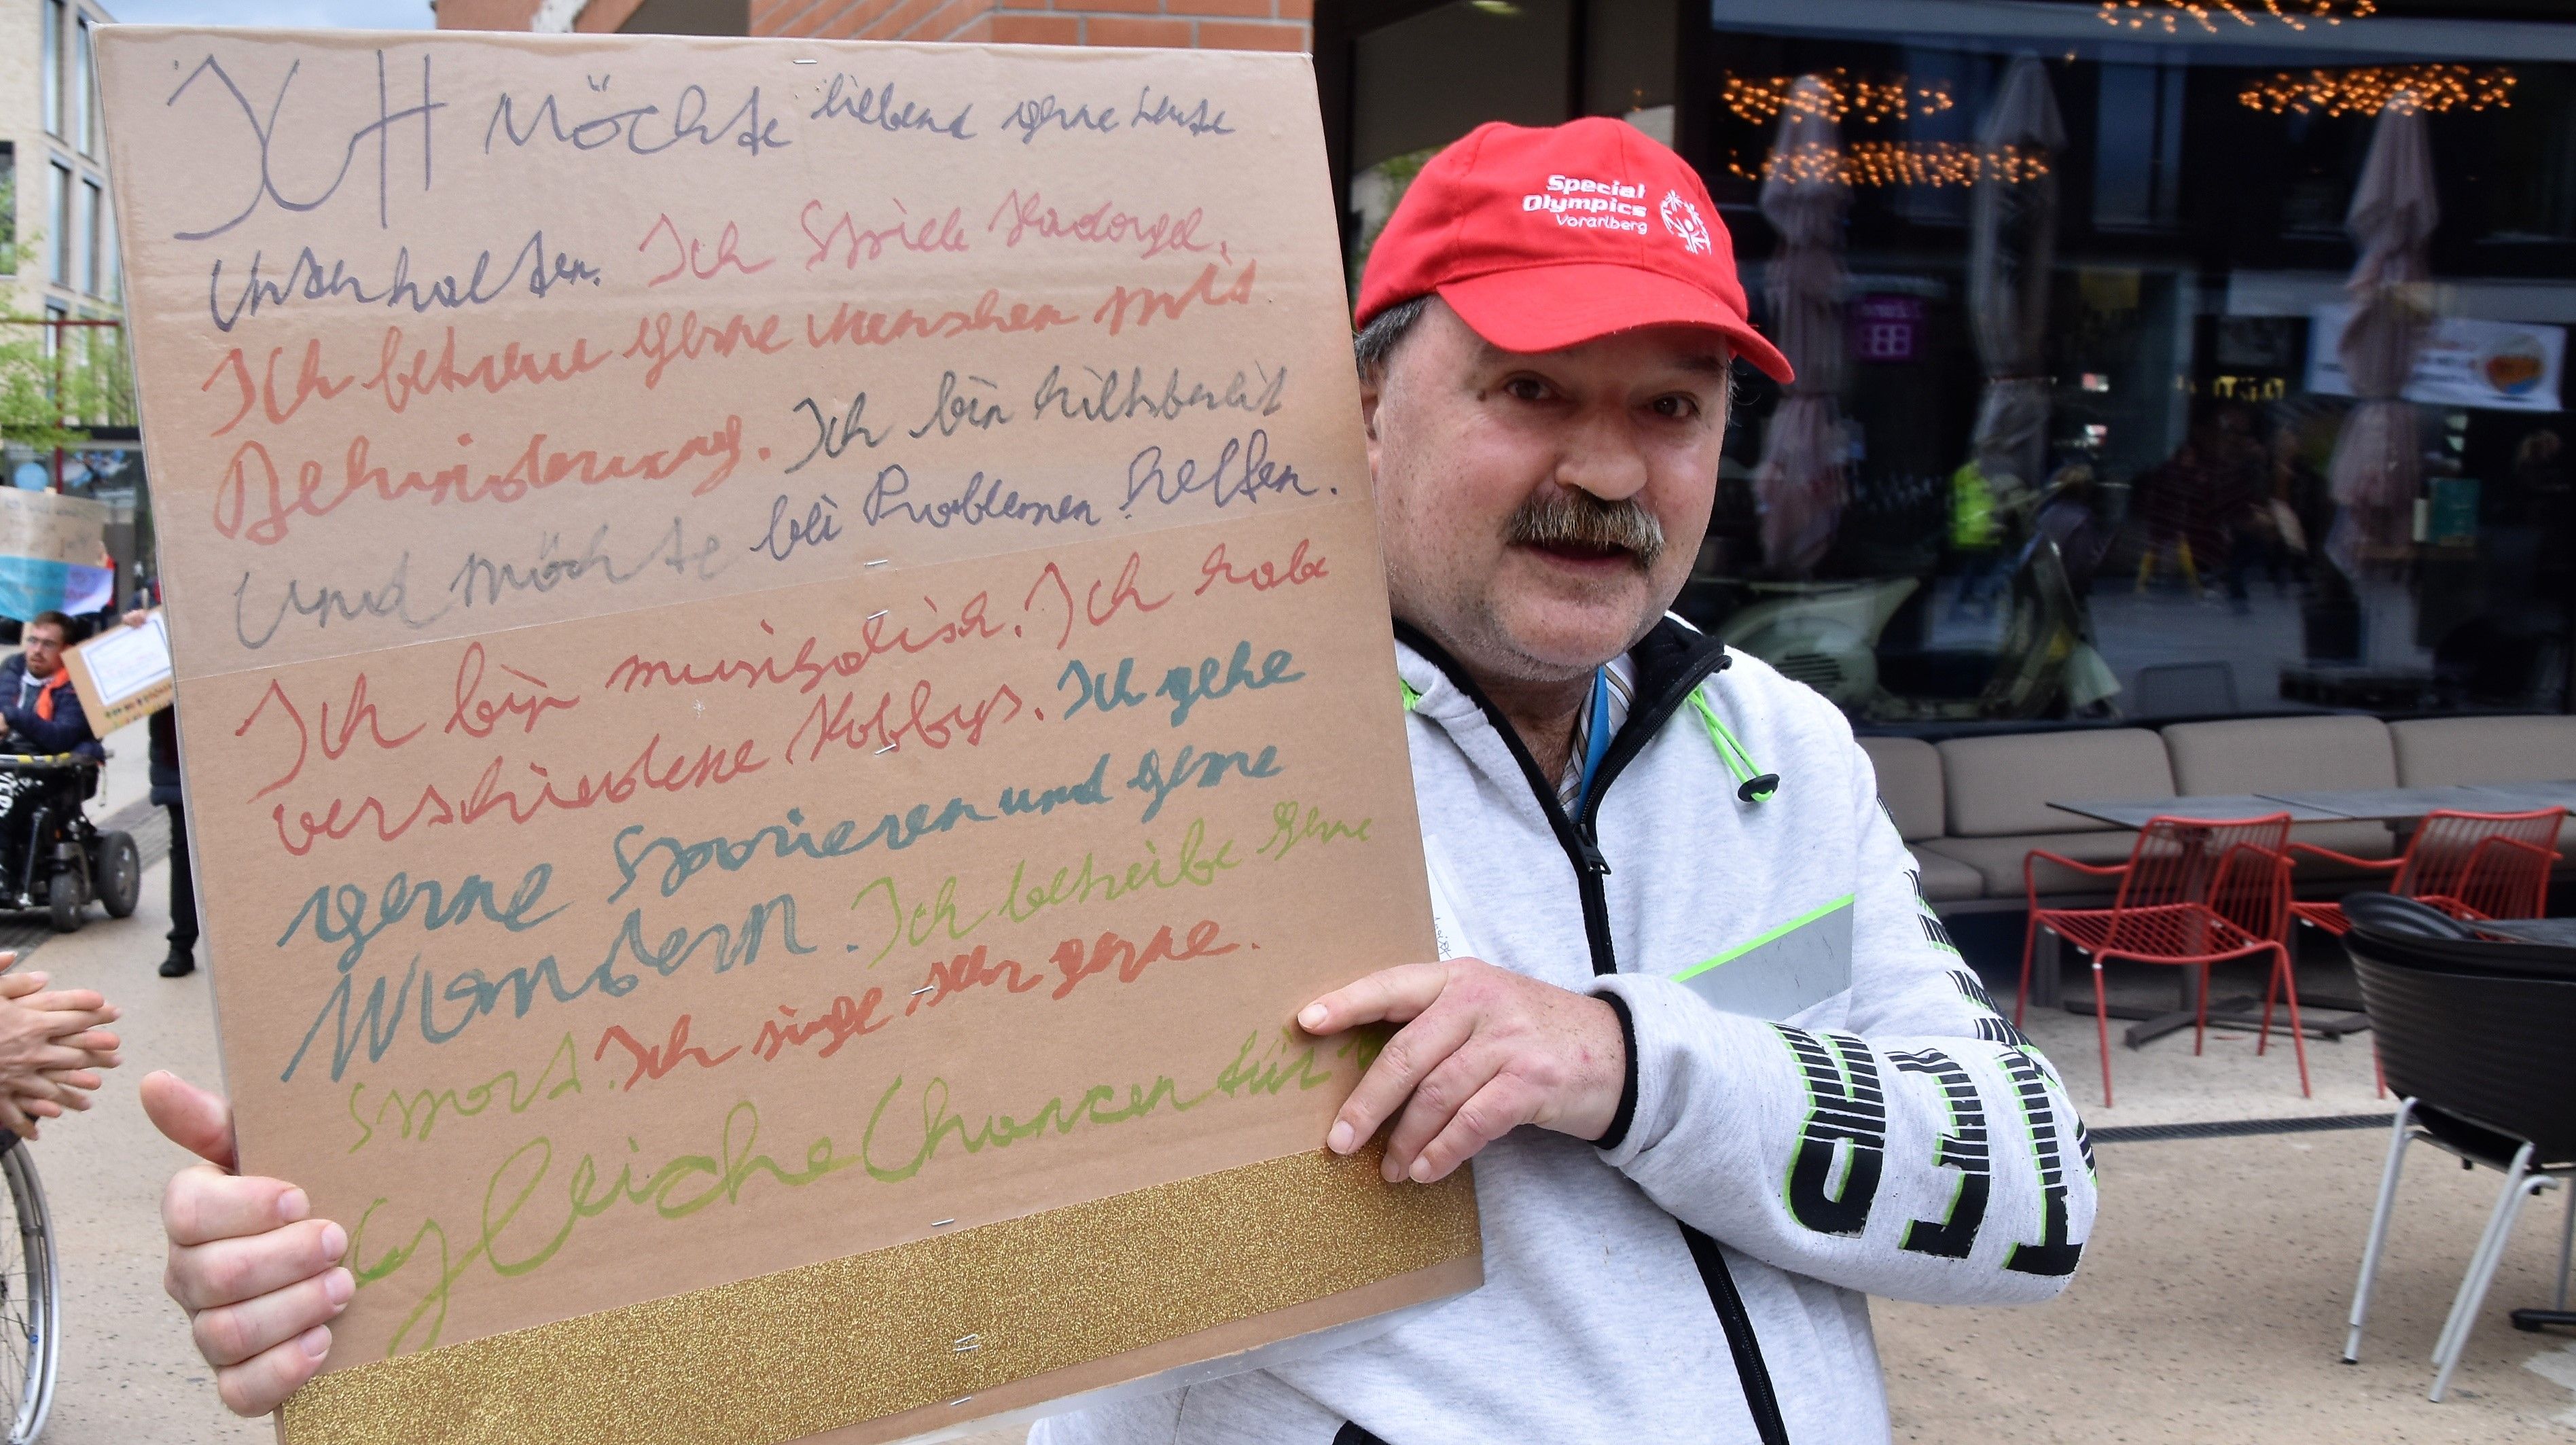 ICH Möchte liebend gerne Leute
Unterhalten. Ich Spiele Hadorgel.
Ich betreue gerne menschen mit
Behinderung. Ich bin hilfsbereit
und möchte bei Problemen helfen.
Ich bin musikalisch. Ich habe
verschiedene Hobbys. Ich gehe
gerne Spazieren und gerne
Wandern. Ich betreibe gerne
Sport. Ich singe sehr gerne.
gleiche Chancen für
Special
Olympics
Vorarlberg